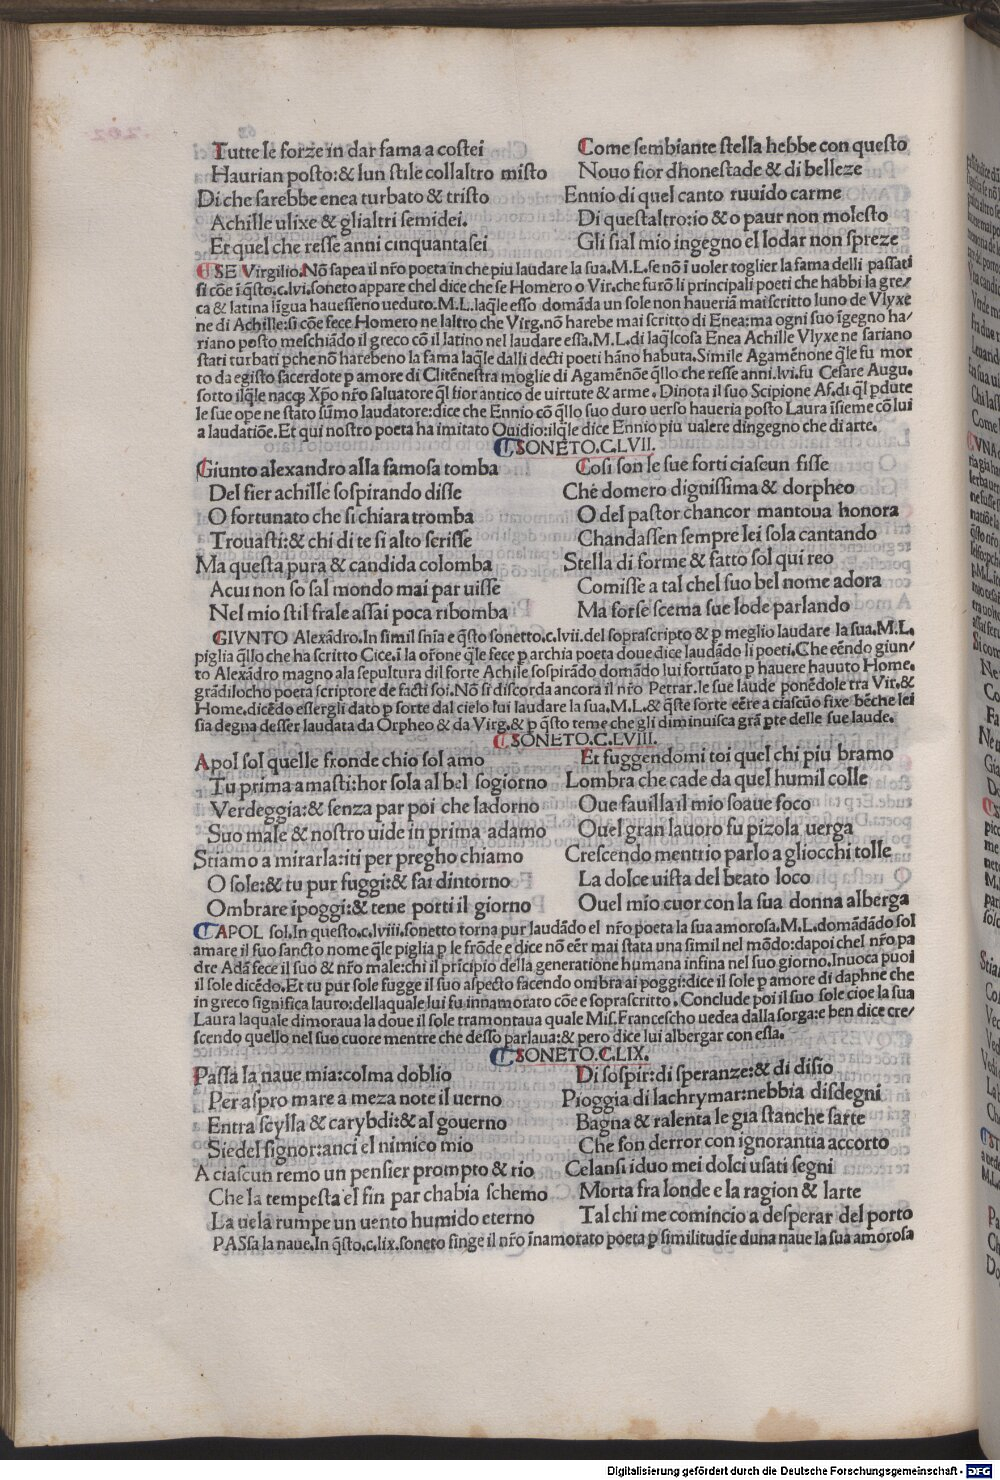 Tutte le forze in dar fama a costei
Haurian posto:& lun stile collaltro misto
Di che sarebbe enea turbato & tristo
Achille ulixe & glialtri semidei.
Et quel che resse anni cinquantasei
Come sembiante stella hebbe con questo
Nouo fior dhonestade & di belleze
Ennio di quel canto ruuido carme
Di questaltro:io & o paur non molesto
Gli sial mio ingegno el lodar non spreze
SE Virgilio.Nõ sapea il nr̃o poeta in che piu laudare la sua.M.L.se nõ ĩ uoler toglier la fama delli passati
si cõe ĩ q̃sto.c.lvi.soneto appare chel dice che se Homero o Vir.che furõ li principali poeti che habbi la gre/
ca & latina lĩgua hauesseno ueduto.M.L.laq̃le esso domãda un sole non haueriã mai scritto luno de Vlyxe
ne di Achille:si cõe fece Homero ne laltro che Virg.nõ harebe mai scritto di Enea:ma ogni suo ĩgegno ha/
riano posto meschiãdo il greco cõ il latino nel laudare essa.M.L.di laq̃lcosa Enea Achille Vlyxe ne sariano
stati turbati pche nõ harebeno la fama laq̃le dalli decti poeti hãno habuta.Simile Agamẽnone q̃le fu mor
to da egisto sacerdote p amore di Clitẽnestra moglie di Agamẽnõe q̃llo che resse anni.lvi.fu Cesare Augu.
sotto ilq̃le nacq; Xp̃o nr̃o saluatore q̃l fior antico de uirtute & arme.Dinota il suo Scipione Af.di q̃l pdute
le sue ope ne stato sũmo laudatore:dice che Ennio cõ q̃llo suo duro uerso haueria posto Laura ĩsieme cõ lui
a laudatiõe.Et qui nostro poeta ha imitato Ouidio:ilq̃le dice Ennio piu ualere dingegno che di arte.
SONETO.C.LVII.
Giunto alexandro alla famosa tomba
Del fier achille sospirando disse
O fortunato che si chiara tromba
Trouasti:& chi di te si alto scrisse
Ma questa pura & candida colomba
A cui non so sal mondo mai par uisse
Nel mio stil frale assai poca ribomba
Cosi son le sue forti ciascun fisse
Che domero dignissima & dorpheo
O del pastor chancor mantoua honora
Chandassen sempre lei sola cantando
Stella di forme & fatto sol qui reo
Comisse a tal chel suo bel nome adora
Ma forse scema sue lode parlando
GIVNTO Alexãdro.In simil snĩa e q̃sto sonetto.c.lvii.del soprascripto & p meglio laudare la sua.M.L.
piglia q̃llo che ha scritto Cice.ĩ la or̃one q̃le fece p archia poeta doue dice laudãdo li poeti.Che eẽndo giun/
to Alexãdro magno ala sepultura dil forte Achile sospirãdo domãdo lui fortũato p hauere hauuto Home.
grãdilocho poeta scriptore de facti soi.Nõ si discorda ancora il nr̃o Petrar.le sue laude ponẽdole tra Vir.&
Home.dicẽdo essergli dato p sorte dal cielo lui laudare la sua.M.L.& q̃ste sorte eẽre a ciascũo fixe bẽche lei
sia degna desser laudata da Orpheo & da Virg.& p q̃sto teme che gli diminuisca grã pte delle sue laude.
SONETO.C.LVIII.
Apol sol quelle fronde chio sol amo
Tu prima amasti:hor sola al bel sogiorno
Verdeggia:& senza par poi che ladorno
Suo male & nostro uide in prima adamo
Stiamo a mirarla:iti per pregho chiamo
O sole:& tu pur fuggi:& fai dintorno
Ombrare ipoggi:& tene porti il giorno
Et fuggendomi toi quel chi piu bramo
Lombra che cade da quel humil colle
Oue fauilla il mio soaue foco
Ouel gran lauoro fu pizola uerga
Crescendo mentrio parlo a gliocchi tolle
La dolce uista del beato loco
Ouel mio cuor con la sua donna alberga
APOL sol.In questo.c.lviii.sonetto torna pur laudãdo el nr̃o poeta la sua amorosa.M.L.domãdãdo sol
amare il suo sancto nome q̃le piglia p le frõde e dice nõ eẽr mai stata una simil nel mõdo:dapoi chel nr̃o pa
dre Adã fece il suo & nr̃o male:chi il prĩcipio della generatione humana infina nel suo giorno.Inuoca puoi
il sole dicẽdo.Et tu pur sole fugge il suo aspecto facendo ombra ai poggi:dice il sole p amore di daphne che
in greco significa lauro:dellaquale lui fu innamorato cõe e soprascritto.Conclude poi il suo sole cioe la sua
Laura laquale dimoraua la doue il sole tramontaua quale Mis.Francescho uedea dalla sorga:e ben dice cre/
scendo quello nel suo cuore mentre che desso parlaua:& pero dice lui albergar con essa.
SONETO.C.LIX.
Passa la naue mia:colma doblio
Per aspro mare a meza note il uerno
Entra scylla & carybdi:& al gouerno
Siedel signor:anci el nimico mio
A ciascun remo un pensier prompto & rio
Che la tempesta el fin par chabia schemo
La uela rumpe un uento humido eterno
Di sospir:di speranze:& di disio
Pioggia di lachrymar:nebbia disdegni
Bagna & ralenta le gia stanche sarte
Che son derror con ignorantia accorto
Celansi iduo mei dolci usati segni
Morta fra londe e la ragion & larte
Tal chi me comincio a desperar del porto
PASsa la naue.In q̃sto.c.lix.soneto finge il nr̃o ĩnamorato poeta p similitudĩe duna naue la sua amorosa
Digitalisierung gefördert durch die Deutsche Forschungsgemeinschaft - DFG